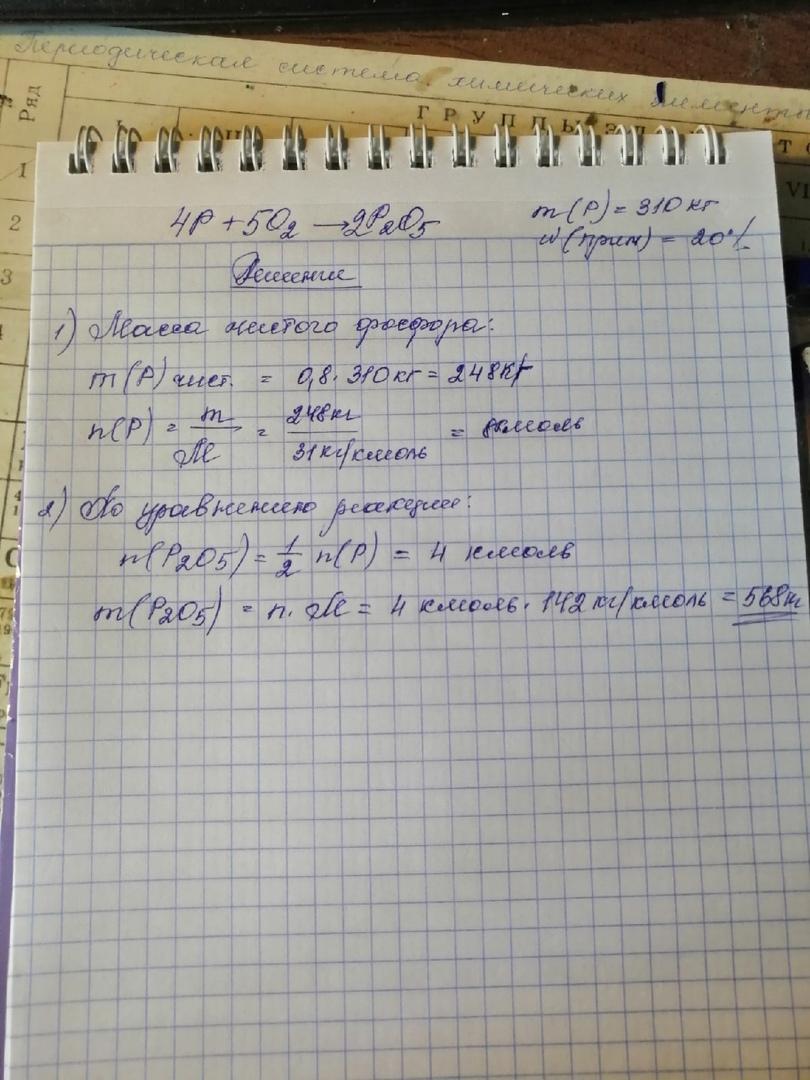 Периодическая система химических элементы
Ряд
ГРУППЫ ЭЛ
1
2
3
VI
4P + 5O₂ → 2P₂O₅
m(P) = 310 кг
w(прим) = 20%
Решение
1) Масса чистого фосфора:
m(P) чист. = 0,8 · 310 кг = 248 кг
n(P) = m/M = 248 кг/31 кг/кмоль = 8 кмоль
2) По уравнению реакции:
n(P₂O₅) = 1/2 n(P) = 4 кмоль
m(P₂O₅) = n · M = 4 кмоль · 142 кг/кмоль = 568 кг